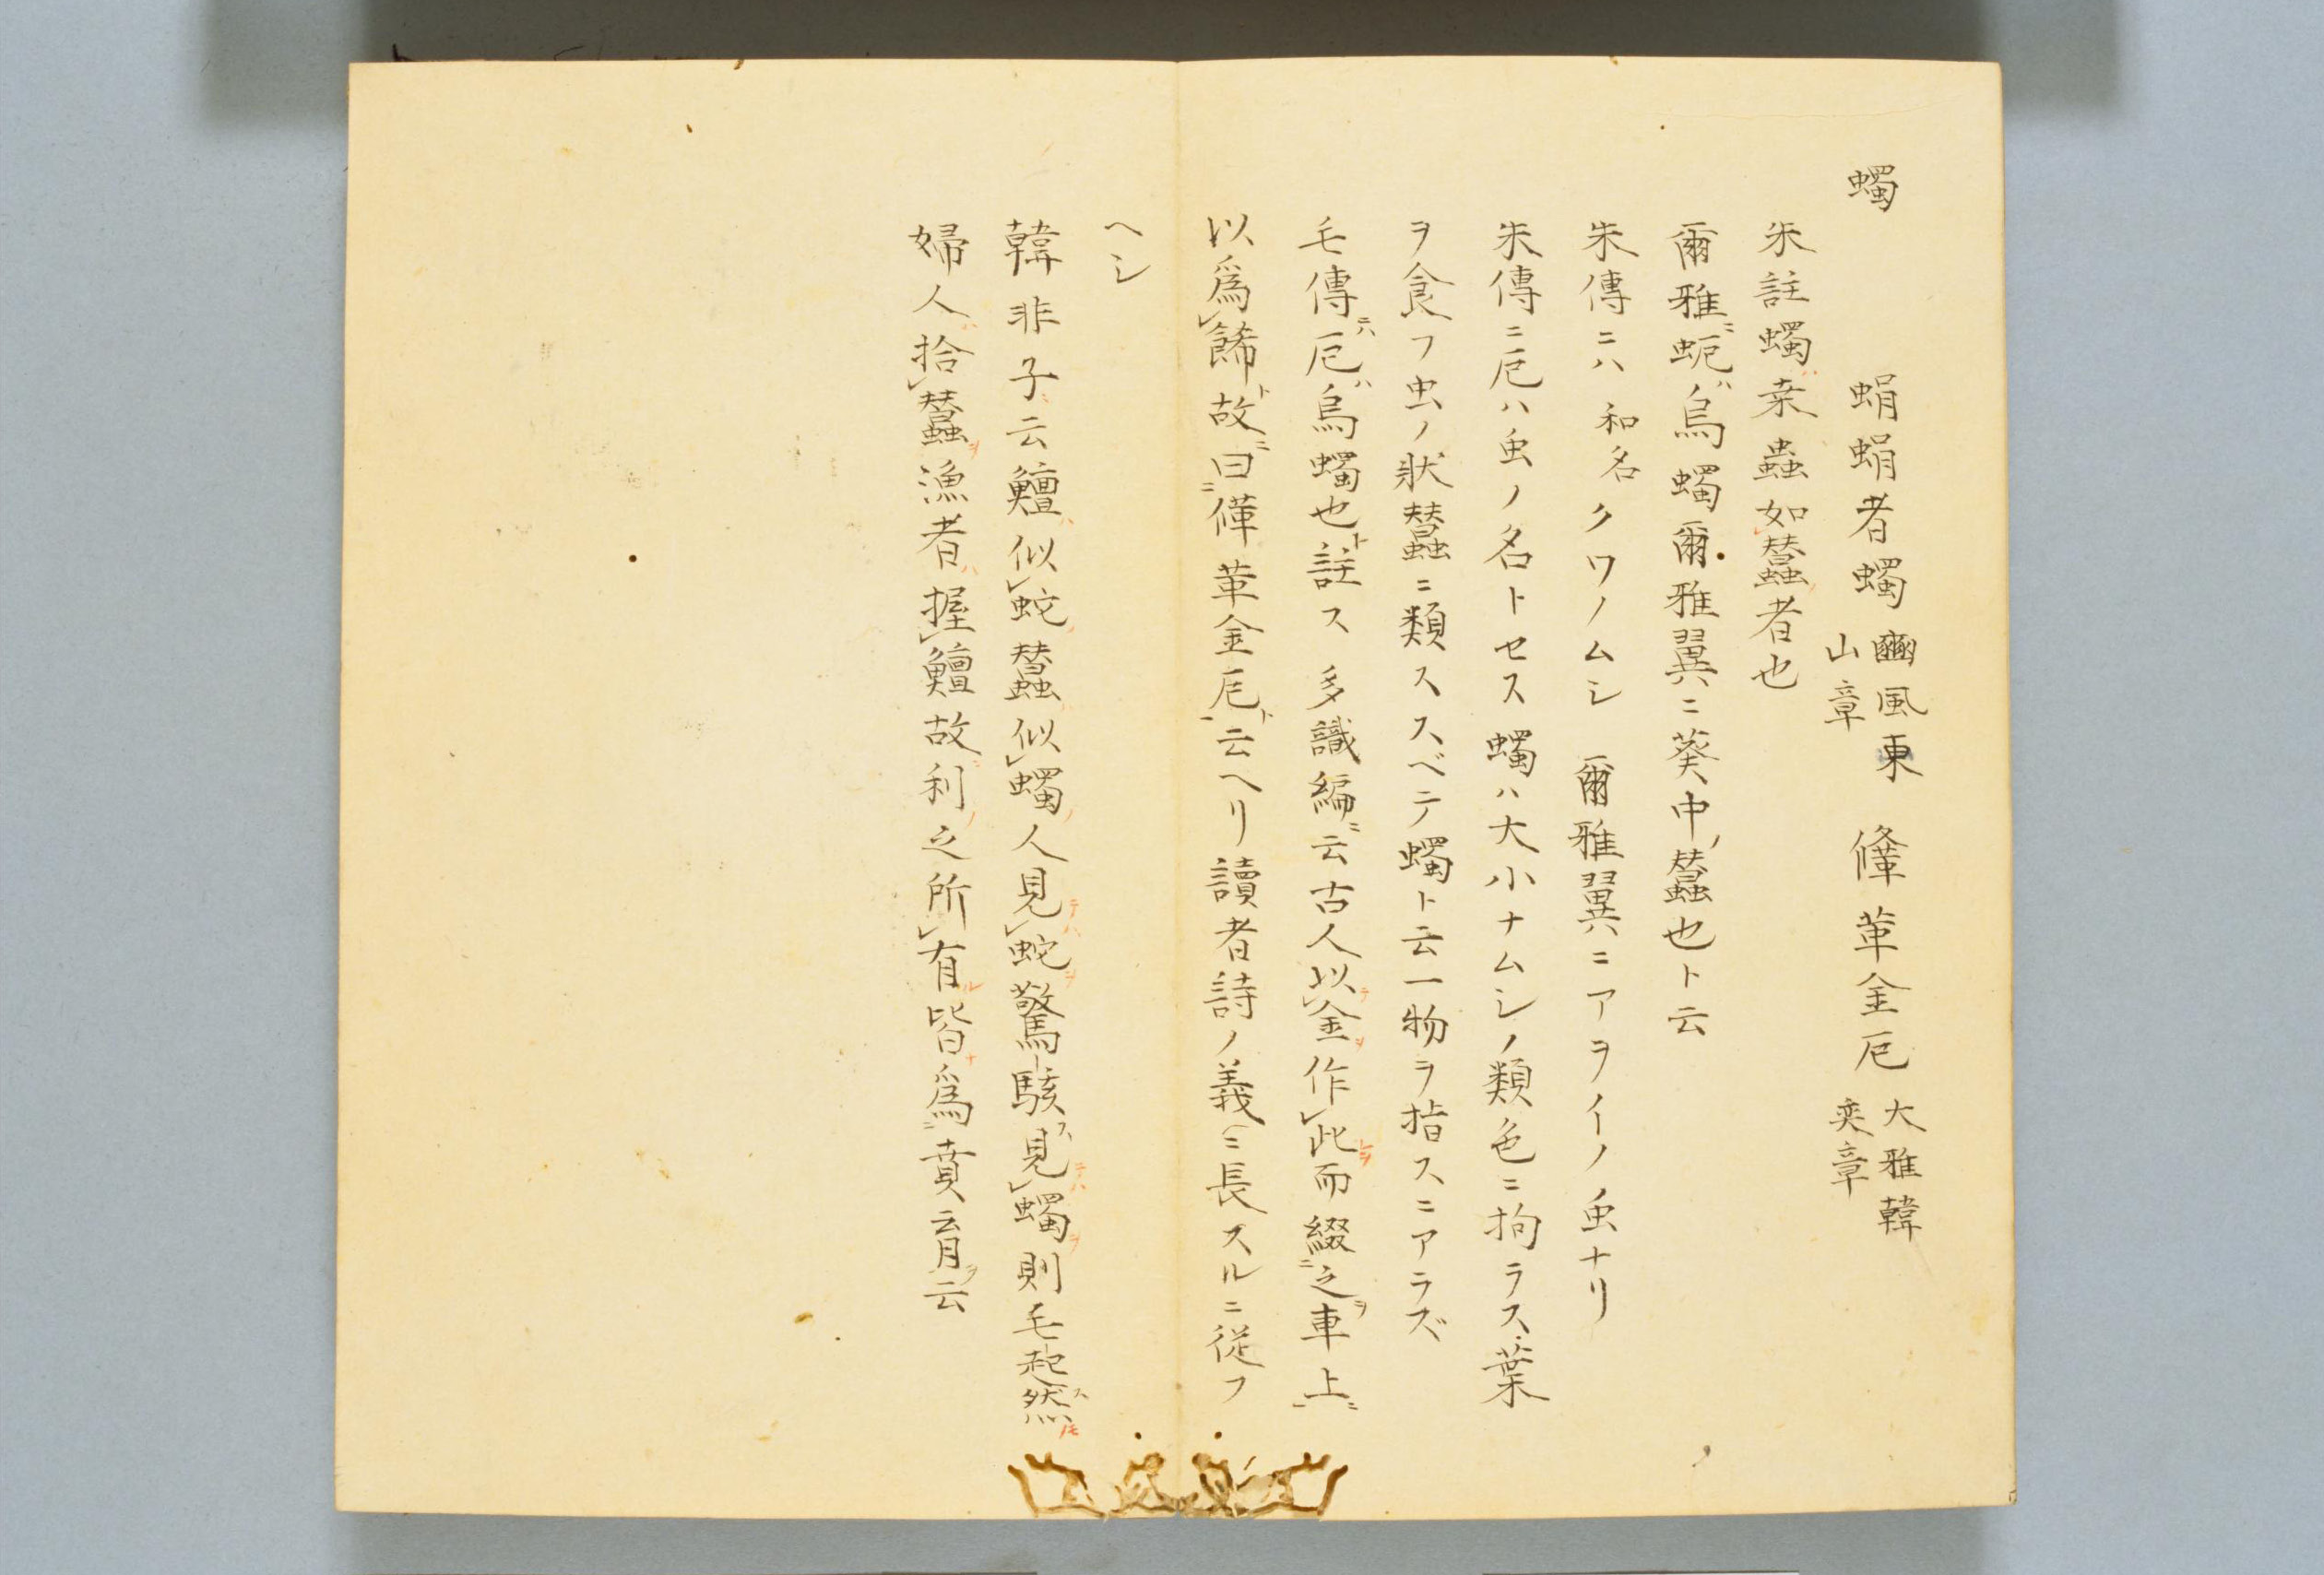 蠋　蜎蜎者蠋 豳風東山章　鞗革金厄 大雅韓奕章
朱註蠋ハ桒蟲如レ蠶ノ者也
爾雅ニ蚅ハ烏蠋爾雅翼ニ葵中ノ蠶也ト云
朱傳ニハ和名クワノムシ　爾雅翼ニアヲイノ虫ナリ
朱傳ニ厄ハ虫ノ名トセス蠋ハ大小ナムシノ類色ニ拘ラス葉
ヲ食フ虫ノ狀蠶ニ類ススベテ蠋ト云一物ヲ指スニアラズ
毛傳ニハ厄ハ烏蠋也ト註ス多識編ニ云古人以レ金ヲ作レ此ヲ而綴二之ヲ車上一ニ
以爲レ餙ト故ニ曰二鞗革金厄一ト云ヘリ讀者詩ノ義ニ長スルニ從フ
ヘシ
韓非子ニ云鱣ハ似レ蛇ニ蠶ハ似レ蠋ニ人見レ蛇ヲ驚駭シ見レ蠋ヲ則毛起然ス
婦人拾レ蠶ヲ漁者ハ握レ鱣故利之所レ有ル皆爲二賁育一ヲ云